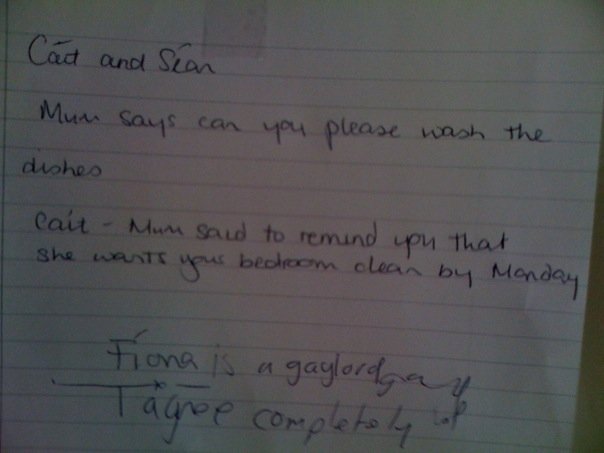 Cáit and Séan
Mum says can you please wash the
dishes
Cáit - Mum said to remind you that
she wants your bedroom clean by Monday
Fíona is a gaylord gay
I agree completely